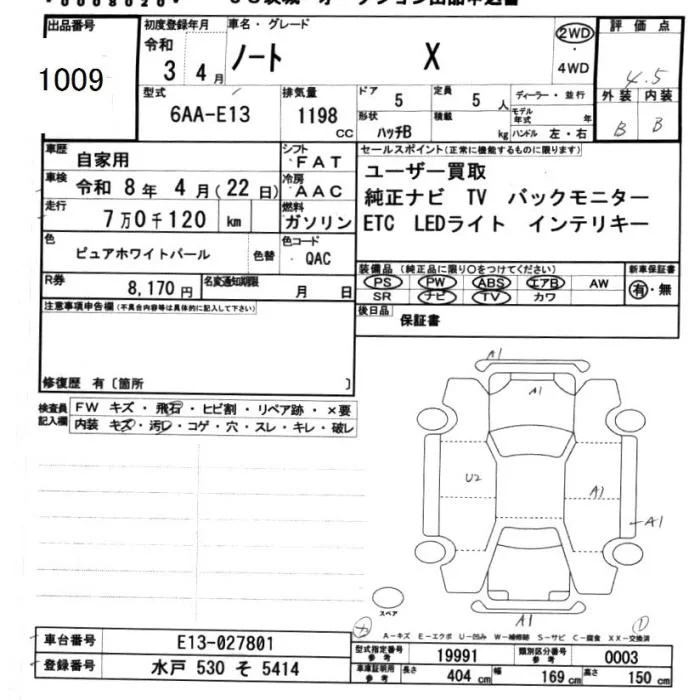 出品番号 初度登録年月 車名・グレード 2WD 評価点
令和
3 4月 ノート X ・ 4WD 4.5
1009
型式 排気量 ドア 定員 ディーラー・並行 外装 内装
6AA-E13 1198 CC 5 5 人 モデル年式 年 B B
形状 積載
ハッチB kg ハンドル 左・右
車歴 自家用 シフト FAT セールスポイント(正常に機能するものに限ります)
車検 令和 8年 4月(22日) 冷房 AAC ユーザー買取
走行 7万0千120 km 燃料 ガソリン 純正ナビ TV バックモニター
ETC LEDライト インテリキー
色 ピュアホワイトパール 色替 色コード QAC
装備品(純正品に限り○をつけてください) 新車保証書
R券 8,170円 名変通知期限 月 日 PS PW ABS エアB AW 有・無
SR ナビ TV カワ
注意事項申告欄(不具合内容等は具体的に記入して下さい) 後日品 保証書
修復歴 有〔箇所 〕
検査員記入欄 FW キズ・飛石・ヒビ割・リペア跡・×要
内装 キズ・汚レ・コゲ・穴・スレ・キレ・破レ
A1
A1
U2
A1
A1
スペア
A1
A-キズ E-エクボ U-凹み W-補修跡 S-サビ C-腐食 XX-交換済
車台番号 E13-027801 型式指定番号 参考 19991 類別区分番号 参考 0003
登録番号 水戸 530 そ 5414 車庫証明用 参考 長さ 404 cm 幅 169 cm 高さ 150 cm